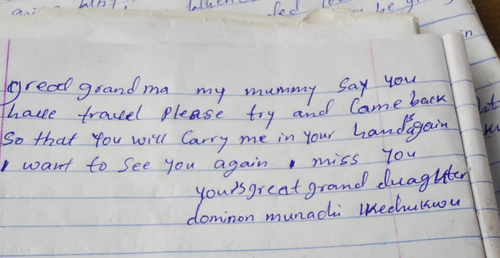 great grand ma my mummy say you
have travel please try and Came back
So that you will Carry me in your hands again
I want to see you again I miss you
yours great grand duaghter
dominon munachi Ikechukwu